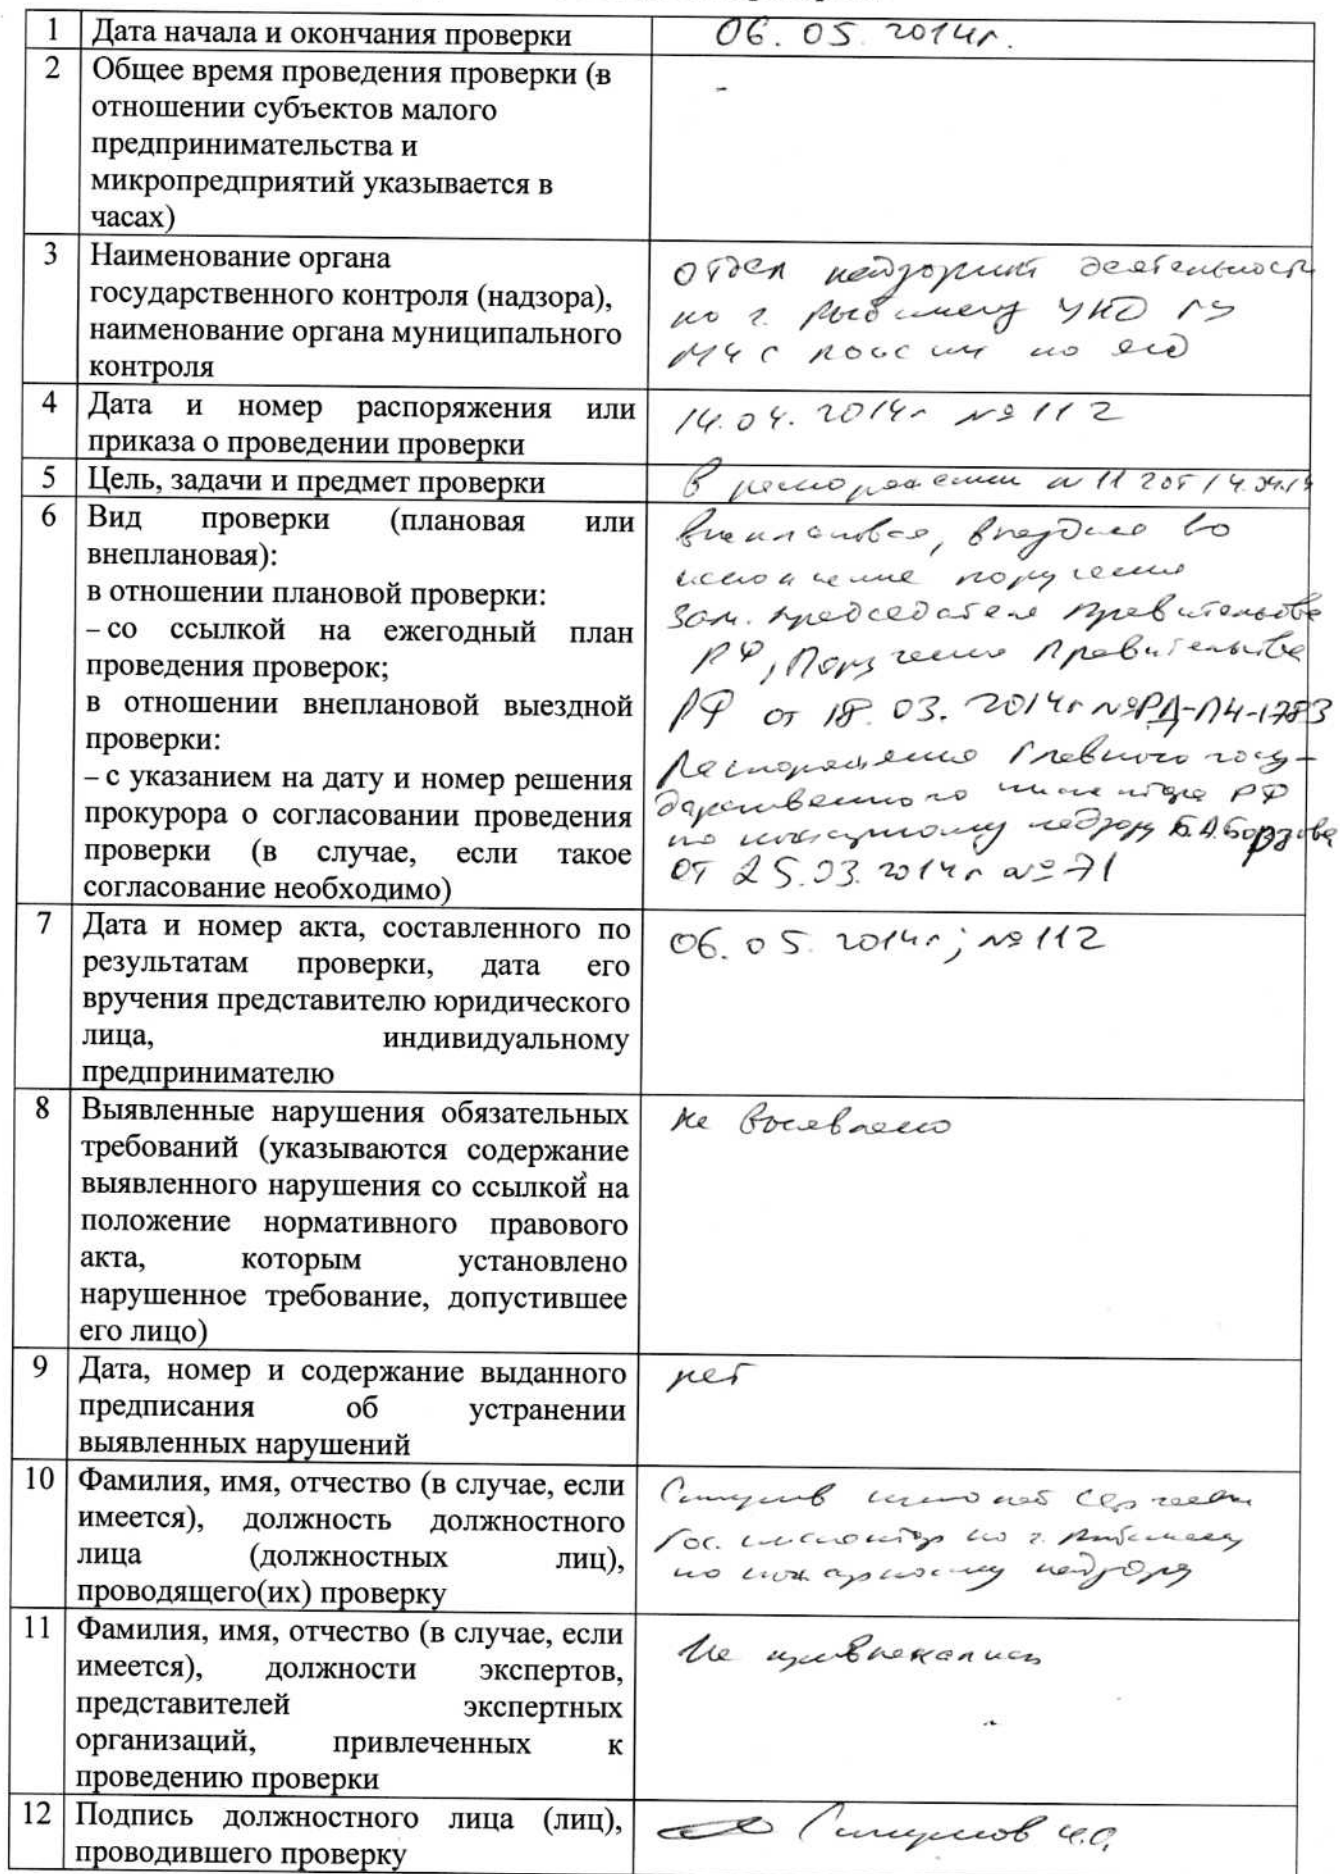 1 Дата начала и окончания проверки 06.05.2014г.
2 Общее время проведения проверки (в
отношении субъектов малого
предпринимательства и
микропредприятий указывается в
часах)
-
3 Наименование органа
государственного контроля (надзора),
наименование органа муниципального
контроля
отдел надзорной деятельности
по г. Рыбинску УНД ГУ
МЧС России по ЯО
4 Дата и номер распоряжения или
приказа о проведении проверки
14.04.2014г №112
5 Цель, задачи и предмет проверки
В распоряжении №112 от 14.04.14
6 Вид проверки (плановая или
внеплановая):
в отношении плановой проверки:
– со ссылкой на ежегодный план
проведения проверок;
в отношении внеплановой выездной
проверки:
– с указанием на дату и номер решения
прокурора о согласовании проведения
проверки (в случае, если такое
согласование необходимо)
внеплановая, выездная во
исполнение поручения
зам. председателя Правительства
РФ, Поручения Правительства
РФ от 18.03.2014г №РД-П4-1783
Распоряжение Главного госу-
дарственного инспектора РФ
по пожарному надзору Б.А.Борзова
от 25.03.2014г №71
7 Дата и номер акта, составленного по
результатам проверки, дата его
вручения представителю юридического
лица, индивидуальному
предпринимателю
06.05.2014г; №112
8 Выявленные нарушения обязательных
требований (указываются содержание
выявленного нарушения со ссылкой на
положение нормативного правового
акта, которым установлено
нарушенное требование, допустившее
его лицо)
не выявлено
9 Дата, номер и содержание выданного
предписания об устранении
выявленных нарушений
нет
10 Фамилия, имя, отчество (в случае, если
имеется), должность должностного
лица (должностных лиц),
проводящего(их) проверку
Гос. инспектор по г. Рыбинску
по пожарному надзору
11 Фамилия, имя, отчество (в случае, если
имеется), должности экспертов,
представителей экспертных
организаций, привлеченных к
проведению проверки
Не привлекались
12 Подпись должностного лица (лиц),
проводившего проверку